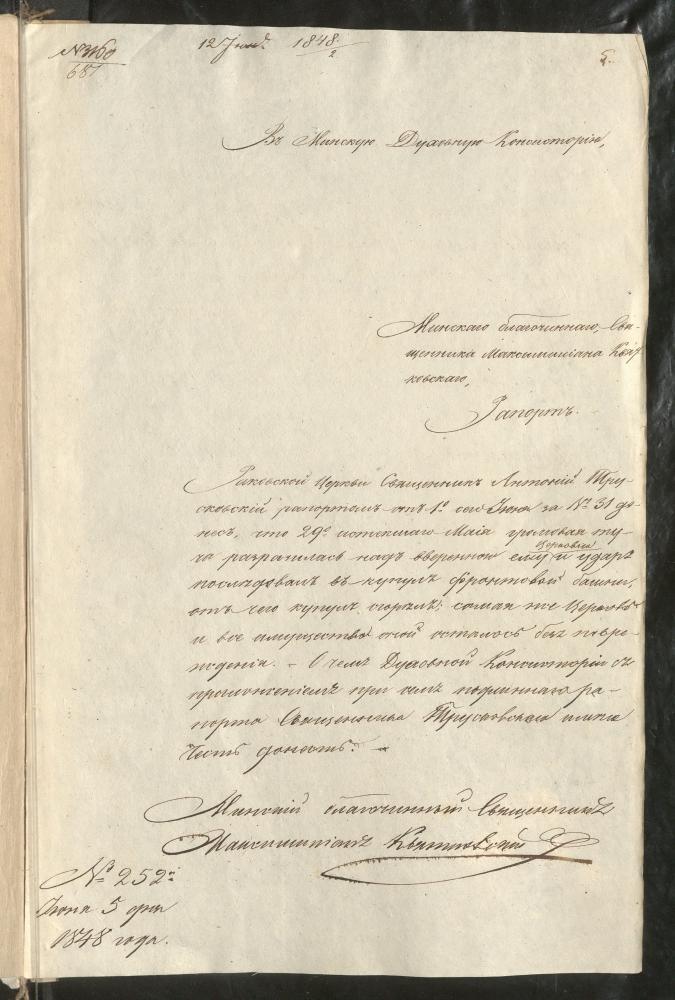 № 3160
681
12 Іюня 1848
2
5.
Въ Минскую Духовную Консисторію,
Минскаго благочиннаго, Свя-
щенника Максимиліана
ковскаго,
Рапортъ.
Раковской Церкви Священникъ Антоній Тру-
сковскій рапортомъ отъ 1го сего Іюня за № 31 до-
несъ, что 29го истекшаго Маія громовая ту-
ча разразилась надъ ввѐренною ему Церковью и ударъ
послѣдовалъ въ куполъ фронтовой башни,
отъ чего куполъ сгорѣлъ; самая же Церковь
и все имущество оной осталось безъ повре-
жденія. – О чемъ Духовной Консисторіи съ
приложеніемъ при семъ подлиннаго ра-
порта Священника Трусковскаго имѣю
честь донесть.
Минскій благочинный Священникъ
Максимиліанъ
№ 252й
Іюня 5 дня
1848 года.